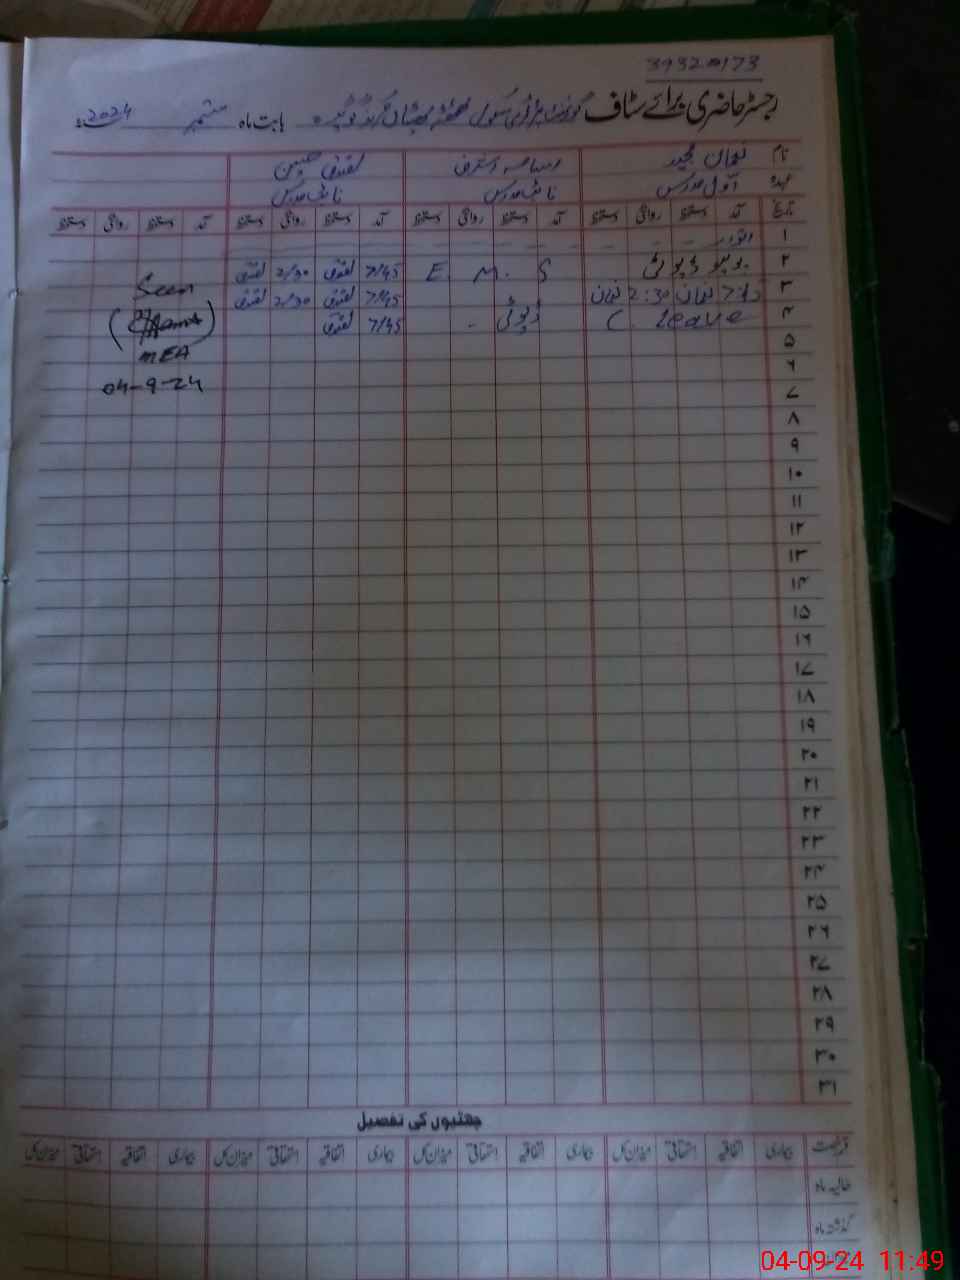 39320173
رجسٹر حاضری برائے سٹاف گورنمنٹ پرائمری سکول بابت ماہ ستمبر 2024ء
نام نعمان مجید
عہدہ اول مدرس نائب مدرس نائب مدرس
تاریخ آمد دستخط روانگی دستخط آمد دستخط روانگی دستخط آمد دستخط روانگی دستخط آمد دستخط روانگی دستخط
۱ اتوار
۲ پولیو ڈیوٹی S M. E 7/45 2/30
Seen
۳ نعمان 2:30 نعمان 7/45 2/30
۴ C. Leave ڈیوٹی - 7/45
MEA
04-9-24
۵
۶
۷
۸
۹
۱۰
۱۱
۱۲
۱۳
۱۴
۱۵
۱۶
۱۷
۱۸
۱۹
۲۰
۲۱
۲۲
۲۳
۲۴
۲۵
۲۶
۲۷
۲۸
۲۹
۳۰
۳۱
چھٹیوں کی تفصیل
قسم رخصت بیماری اتفاقیہ استحقاقی میزان کل بیماری اتفاقیہ استحقاقی میزان کل بیماری اتفاقیہ استحقاقی میزان کل بیماری اتفاقیہ استحقاقی میزان کل
حالیہ ماہ
گذشتہ ماہ
04-09-24 11:49